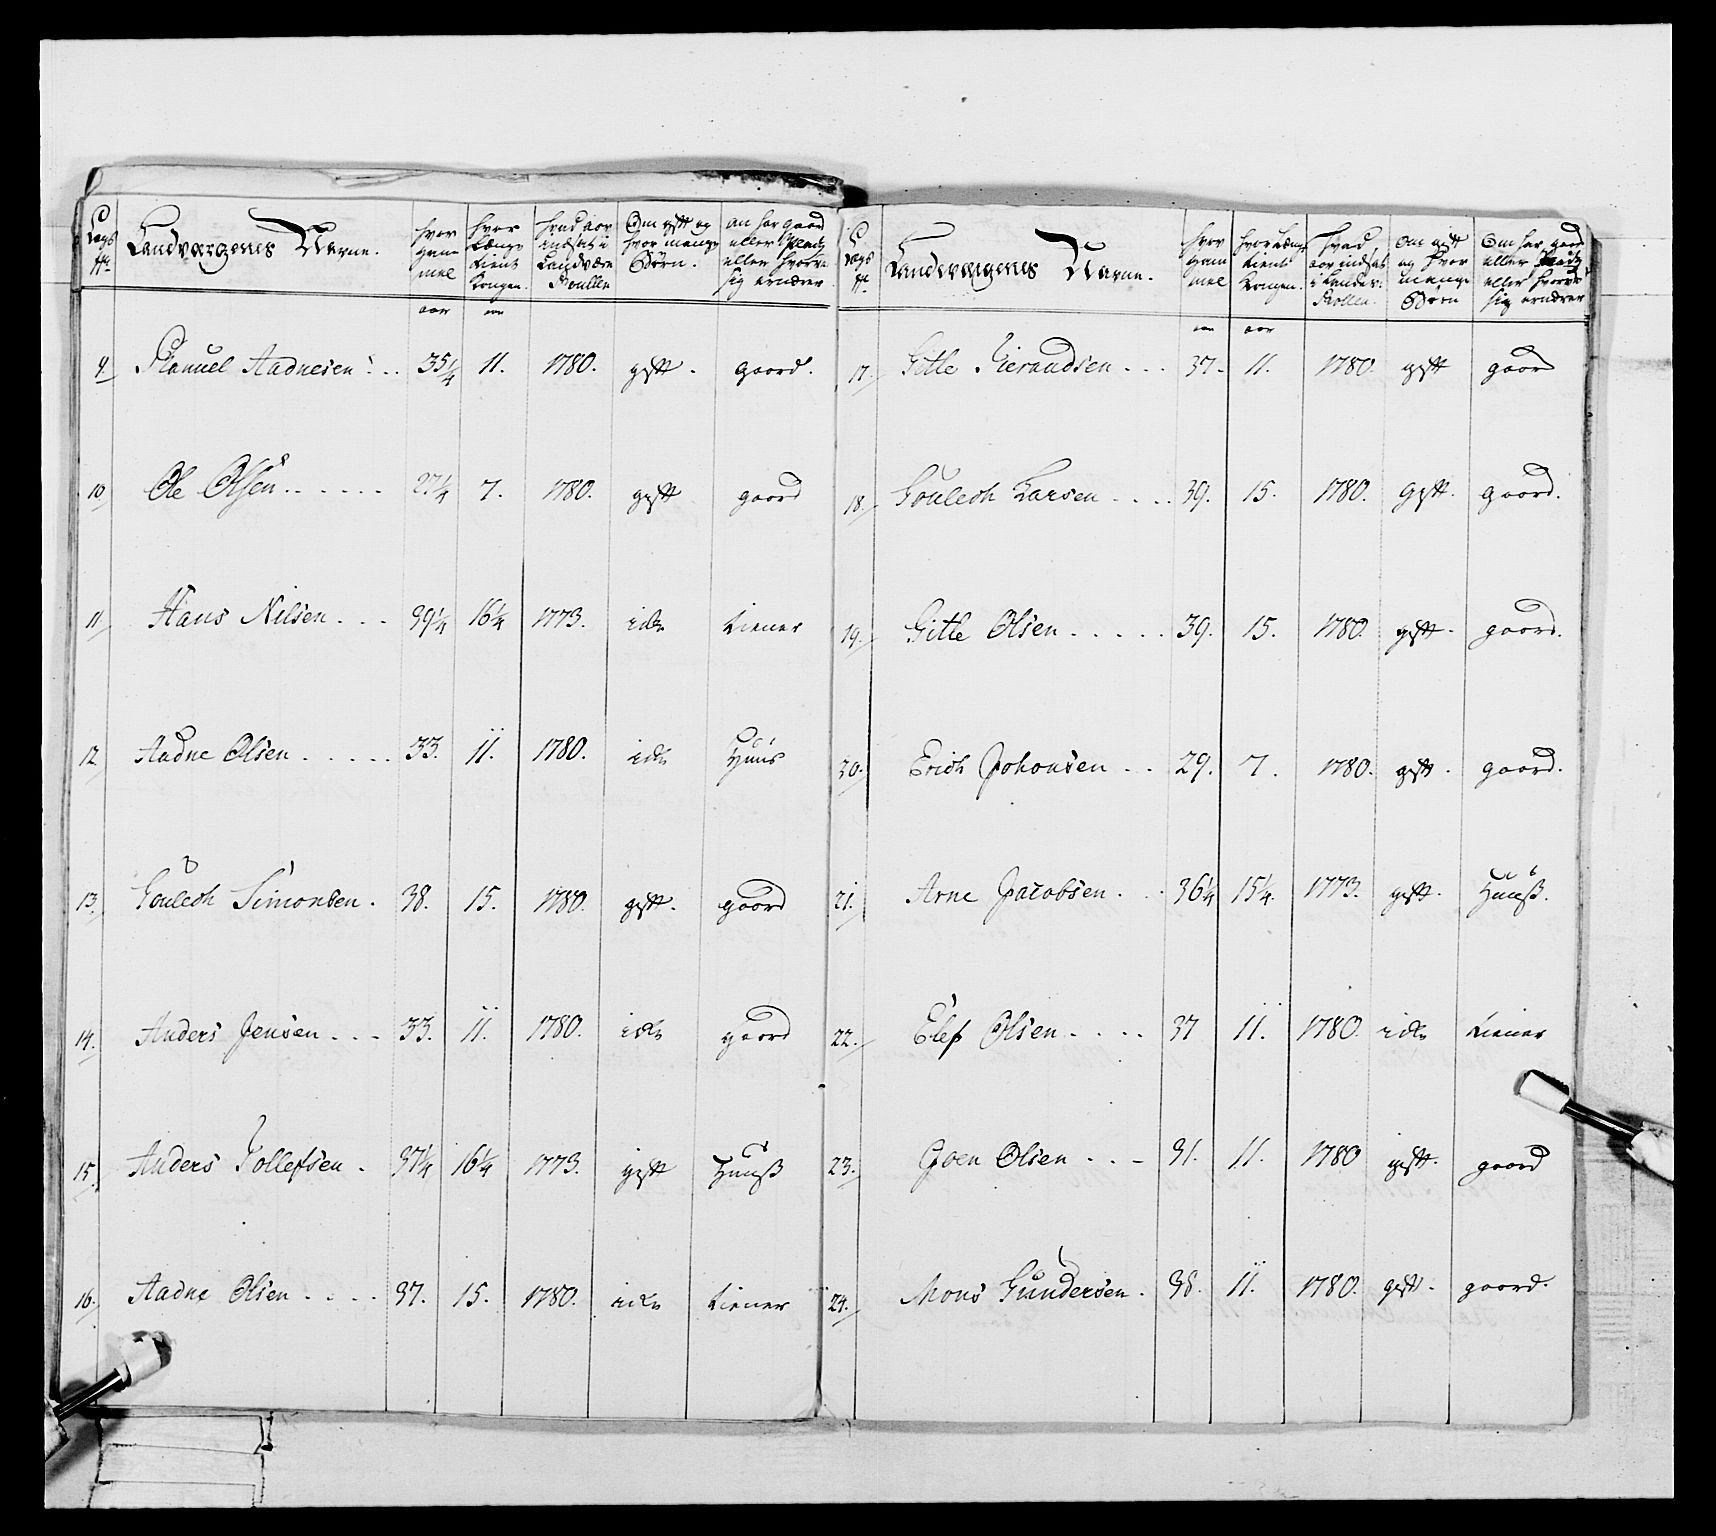 Landværgenes Navne.
hvor gammel
hvor Længe tient Kongen.
hvad aar indsat i Landværn Roullen
Om gift og hvor mange Børn.
om har gaard eller Plads eller hvoraf sig ernærer
aar
9 Samuel Aadnesen 35¼ 11. 1780. gift. gaard.
10 Ole Olsen 27¼ 7. 1780. gift gaard
11 Hans Nilsen 39¼ 16¼ 1773. icke tiener
12 Aadne Olsen 33. 11. 1780. icke Huus
13. Goulech Simonsen. 38. 15. 1780. gift. gaard
14. Anders Jensen 33. 11. 1780. icke gaard
15. Anders Tollefsen. 37¼ 16¼ 1773. gift Huuß
16. Aadne Olsen 37. 15. 1780. icke tiener
Landværgenes Navne.
hvor gammel
hvor Længe tient Kongen.
hvad aar indsat i Landv: Rollen.
om gift og hvor mange Børn
Om har gaard eller Plads eller hvoraf sig ernærer
aar
17. Gitle 37. 11. 1780. gift gaard
18. Goulech Larsen 39. 15. 1780. gift. gaard.
19. Gitle Olsen 39. 15. 1780. gift. gaard.
30. Erich Johansen 29. 7. 1780. gift. gaard.
21. Arne Jacobsen 36¼ 15¼. 1773. gift. Huuß.
22. Elef Olsen 37 11. 1780. icke tiener
23. Joen Olsen 31. 11. 1780 gift. gaard
24. Mons Gundersen. 38. 11. 1780. gift. gaard.